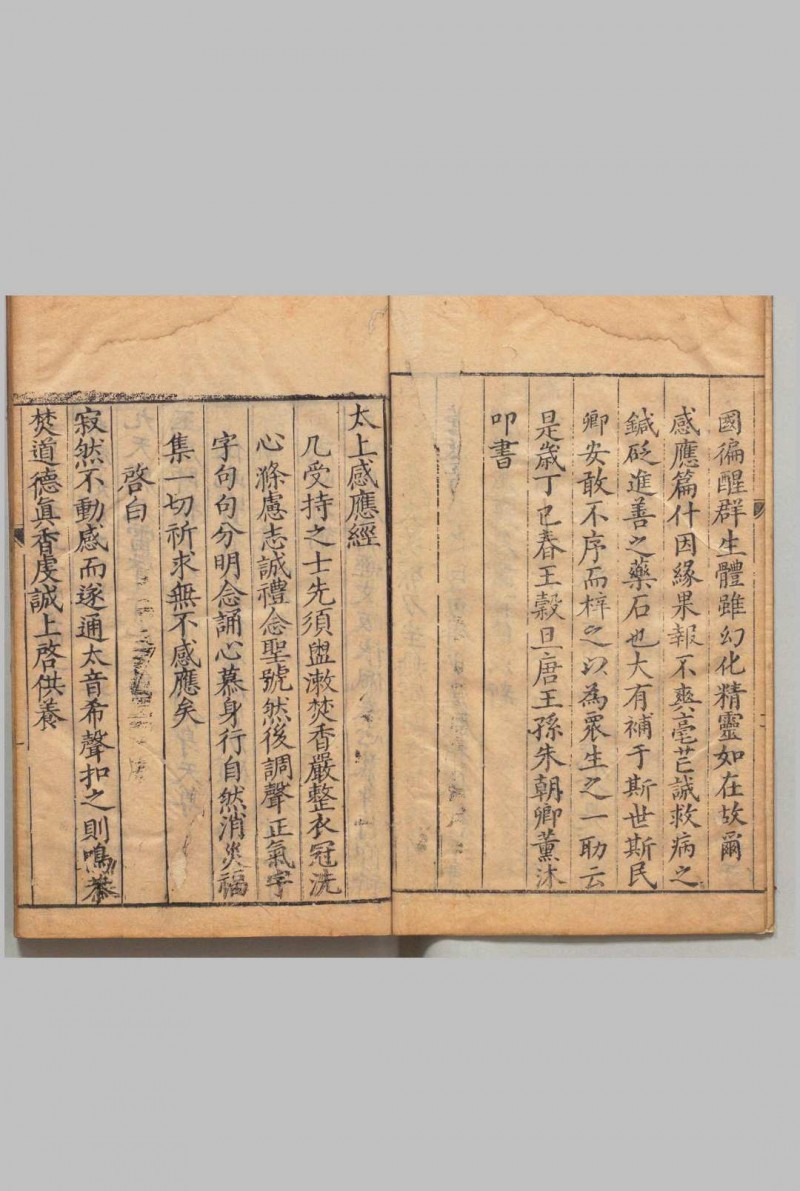 國徧醒群生體雖幻化精靈如在故爾
感應篇什因緣果報不爽毫芒誠救病之
鍼砭進善之藥石也大有補于斯世斯民
卿安敢不序而梓之以為眾生之一助云
是歲丁巳春王穀旦唐王孫朱朝卿薰沐
叩書
太上感應經
凡受持之士先須盥漱焚香嚴整衣冠洗
心滌慮志誠禮念聖號然後調聲正氣字
字句句分明念誦心慕身行自然消災福
集一切祈求無不感應矣
啓白
寂然不動感而遂通太音希聲扣之則鳴恭
焚道德眞香虔誠上啓供養